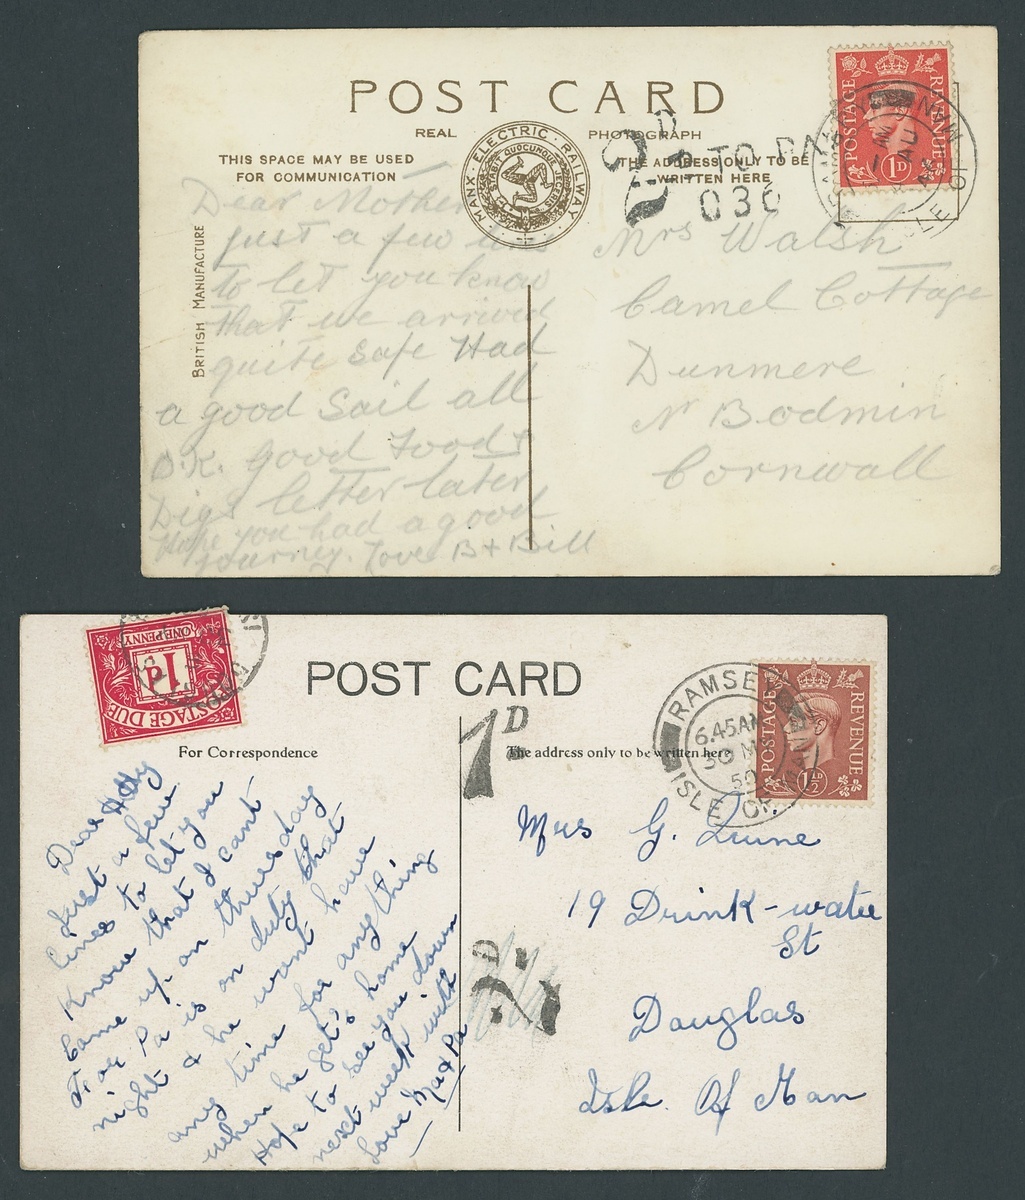 POST CARD
REAL PHOTOGRAPH
THIS SPACE MAY BE USED
FOR COMMUNICATION
MANX · ELECTRIC · RAILWAY
STABIT QUOCUNQUE JECERIS
THE ADDRESS ONLY TO BE
WRITTEN HERE
BRITISH MANUFACTURE
2D
TO PA
036
POSTAGE REVENUE
1D
AU
ISLE OF MAN
Dear Mother
just a few
to let you know
that we arrived
quite safe Had
a good Sail all
O.K. good Food +
Digs letter later
Hope you had a good
journey. Love B + Bill
Mrs Walsh
Camel Cottage
Dunmere
Nr Bodmin
Cornwall
POSTAGE DUE
1D
ONE PENNY
POST CARD
For Correspondence
The address only to be written here
1D
2D
RAMSEY
6.45AM
30 M
50
ISLE OF MAN
POSTAGE REVENUE
1½D
Dear
Just a few
lines to let you
know that I cant
come up on thursday
For Pa is on duty that
night & he wont have
any time for anything
when he get's home
Hope to see you down
next week with
love Ma & Pa
Mrs G.
19 Drink-water
St
Douglas
Isle Of Man